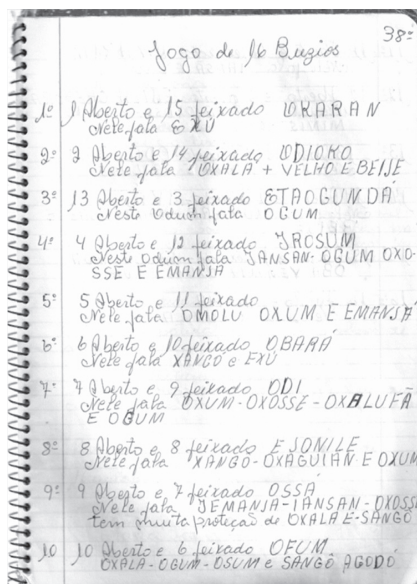 38º
Jogo de 16 Buzios
1º 1 Aberto e 15 feixado OKARAN
Nele fala EXÚ
2º 2 Aberto e 14 feixado ODIOKO
Nele fala OXALA + VELHO E BEIJE
3º 13 Aberto e 3 feixado ETAOGUNDÁ
Neste Odum fala OGUM
4º 4 Aberto e 12 feixado IROSUM
Neste Odum fala IANSAN-OGUM OXO-
SSE E EMANJA
5º 5 Aberto e 11 feixado
Nele fala OMOLU OXUM E EMANJA
6º 6 Aberto e 10 feixado OBARÁ
Nele fala XANGO e EXÚ
7º 7 Aberto e 9 feixado ODI
Nele fala OXUM-OXOSSE-OXALUFA
E OGUM
8º 8 Aberto e 8 feixado EJONILE
Nele fala XANGO-OXAGUIAN E OXUM
9º 9 Aberto e 7 feixado OSSA
Nele fala IEMANJA-IANSAN-OXOSSE
tem muita proteção de OXALA E-SANGO
10 10 Aberto e 6 feixado OFUM
OXALA-OGUM-OSUM e SANGO AGODÔ